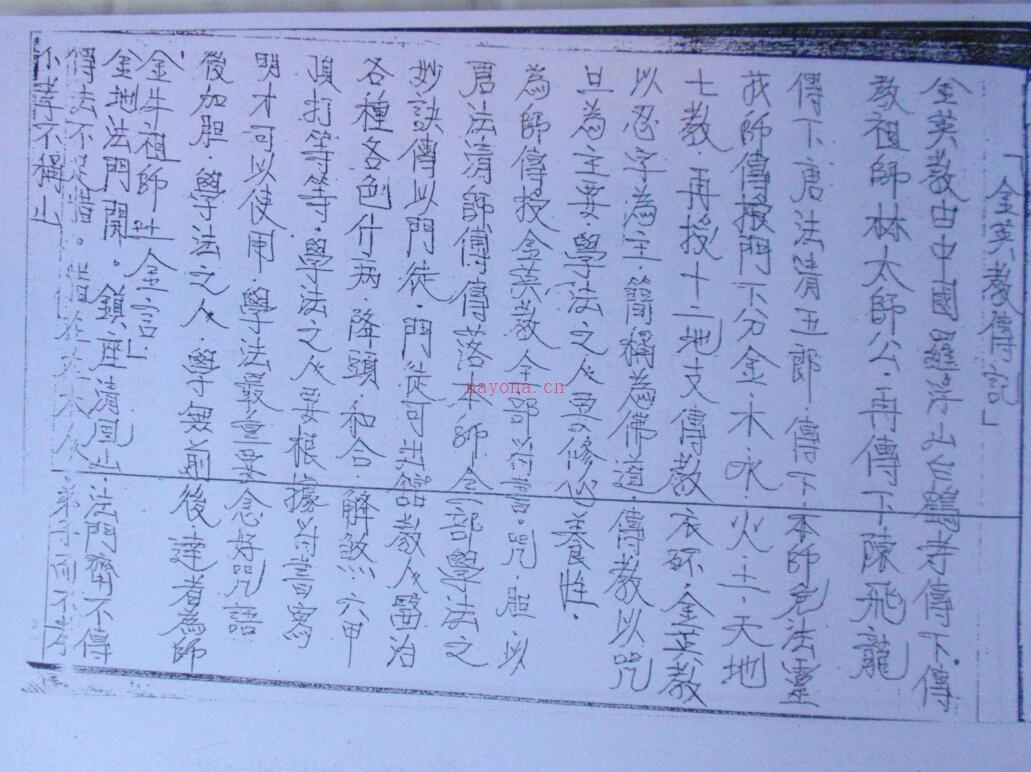 「金英教傳記」
金英教由中國羅浮山白鶴寺傳下傳
教祖師林太師公·再傳下陳飛龍
得下唐法清五郎·傳下本師危法靈
我師傳授門下分金木水·火·土·天地
七教·再授十二地支傳教 衣砵·金英教
以忍字為主·簡稱為佛道·傳教以咒
旦為主要·學法之人要修心養性·
為師傳授金英教全部符書。咒·壇·以
唐法清師傳傳落本師全部學法之
妙訣傳以門徒·門徒可出 教人醫治
各種各色什病·降頭·和合·解煞·六甲
頂打等等·學法之人要根據符書寫
明才可以使用學法最重要念好咒語
後加胆·學法之人·學無前後·達者為師
金牛祖師 金言·
金地法門開。鎮座清風山·法門齊不傳
得法不 惜。 弟子
不孝不稱止
nayona.cn